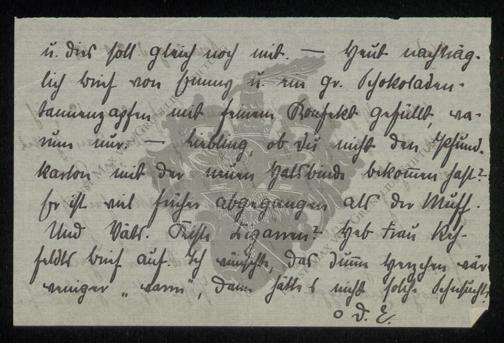 u. dies soll gleich noch mit. — Heut nachträg-
lich Brief von Emmy u. ein gr. Schokoladen-
tannenzapfen mit feinem Konfekt gefüllt, wa-
rum nur. — Liebling, ob Du nicht den Pfund-
karton mit der neuen Halsbinde bekommen hast?
Er ist viel früher abgegangen als der Muff.
Und Väts Kiste Zigarren? Heb Frau Reh-
feldts Brief auf. Ich wünschte, das dumme Herzchen wär
weniger „warm", dann hätte es nicht solche Sehnsucht!
D. E.